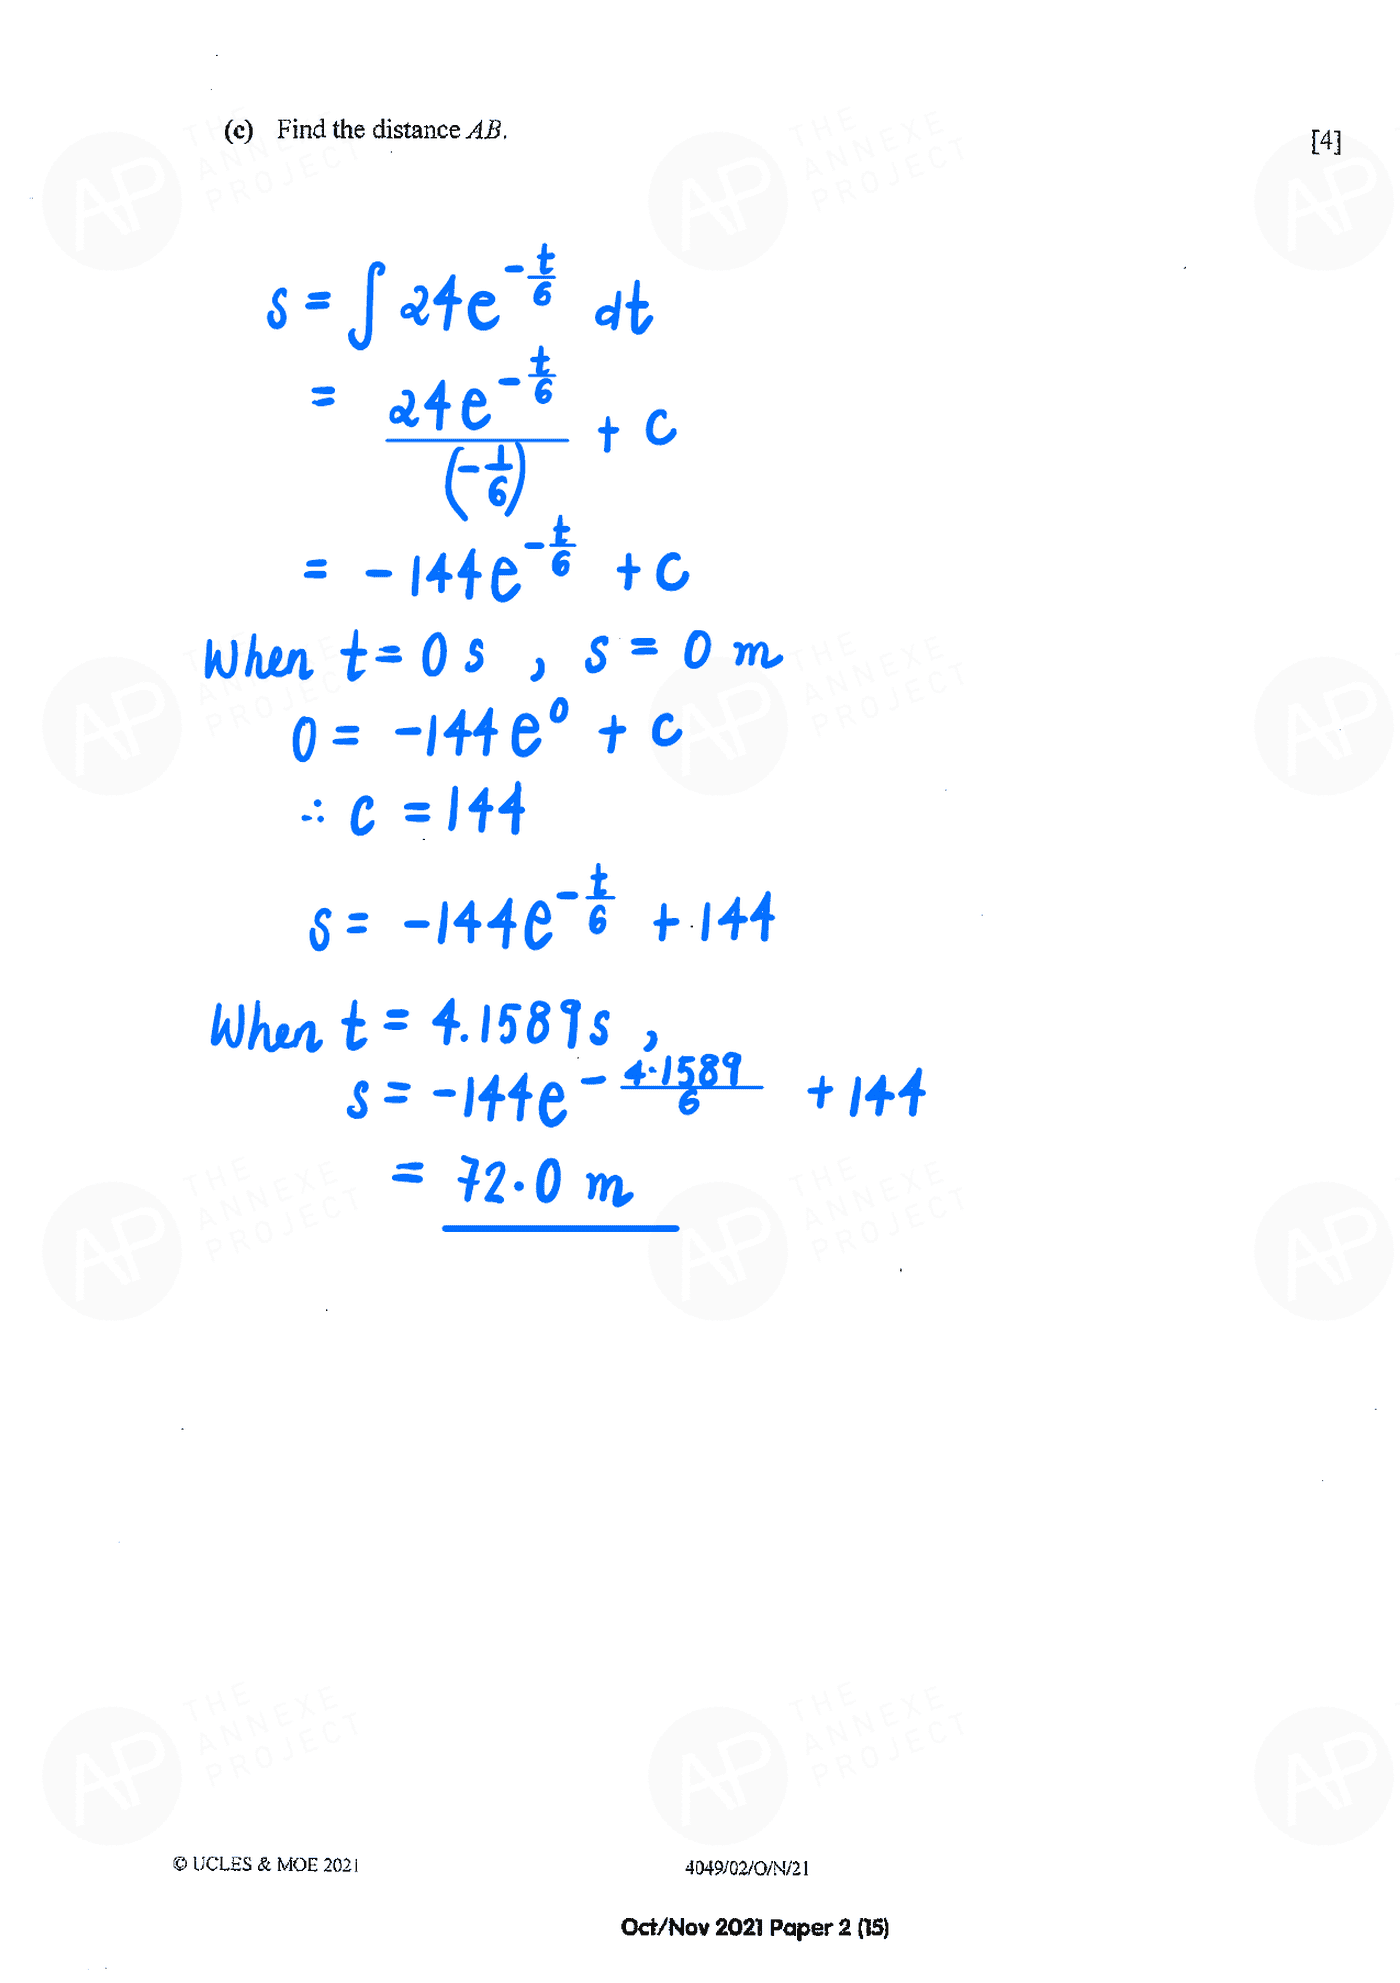 (c) Find the distance AB.
[4]
s = ∫ 24e^(-t/6) dt
= 24e^(-t/6) / (-1/6) + c
= -144e^(-t/6) + c
When t = 0 s , s = 0 m
0 = -144e^0 + c
∴ c = 144
s = -144e^(-t/6) + 144
When t = 4.1589 s ,
s = -144e^(-4.1589/6) + 144
= 72.0 m
© UCLES & MOE 2021
4049/02/O/N/21
Oct/Nov 2021 Paper 2 (15)
THE ANNEXE PROJECT
AP